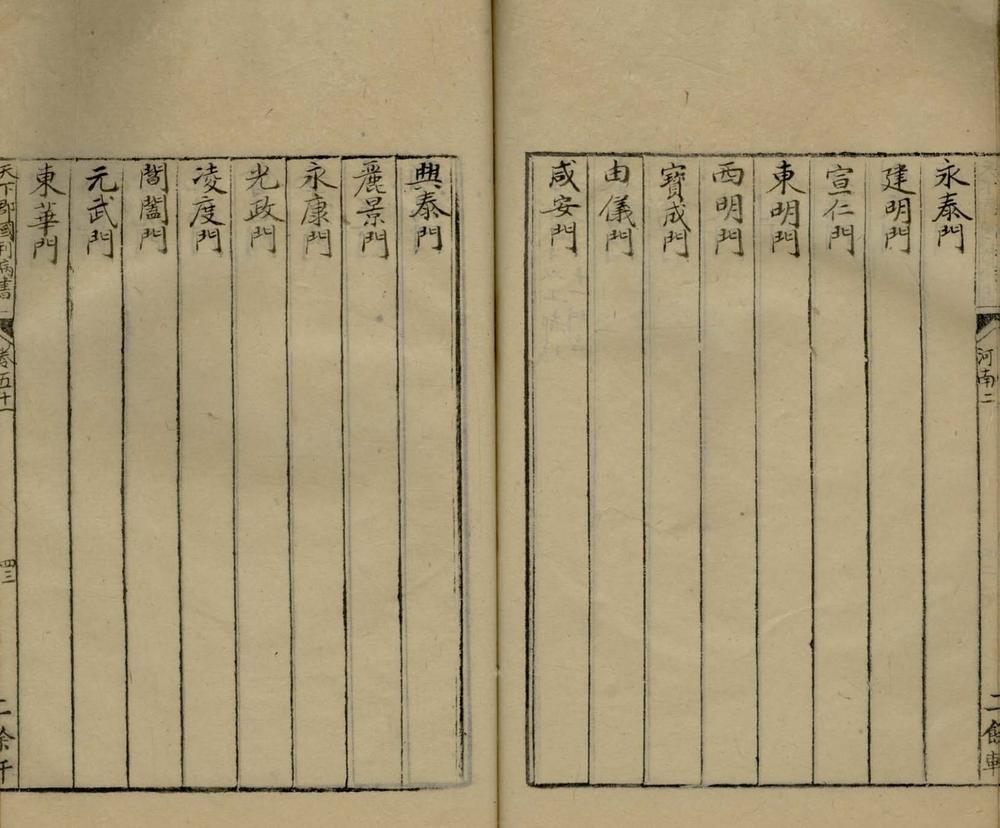 河南二
二餘軒
永泰門
建明門
宣仁門
東明門
西明門
寶成門
由儀門
咸安門
興泰門
麗景門
永康門
光政門
凌度門
閶闔門
元武門
東華門
天下郡國利病書
卷五十
四三
二餘軒